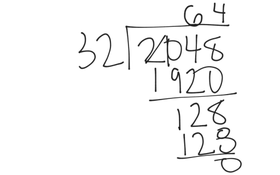 64
32 2048
1920
128
128
0